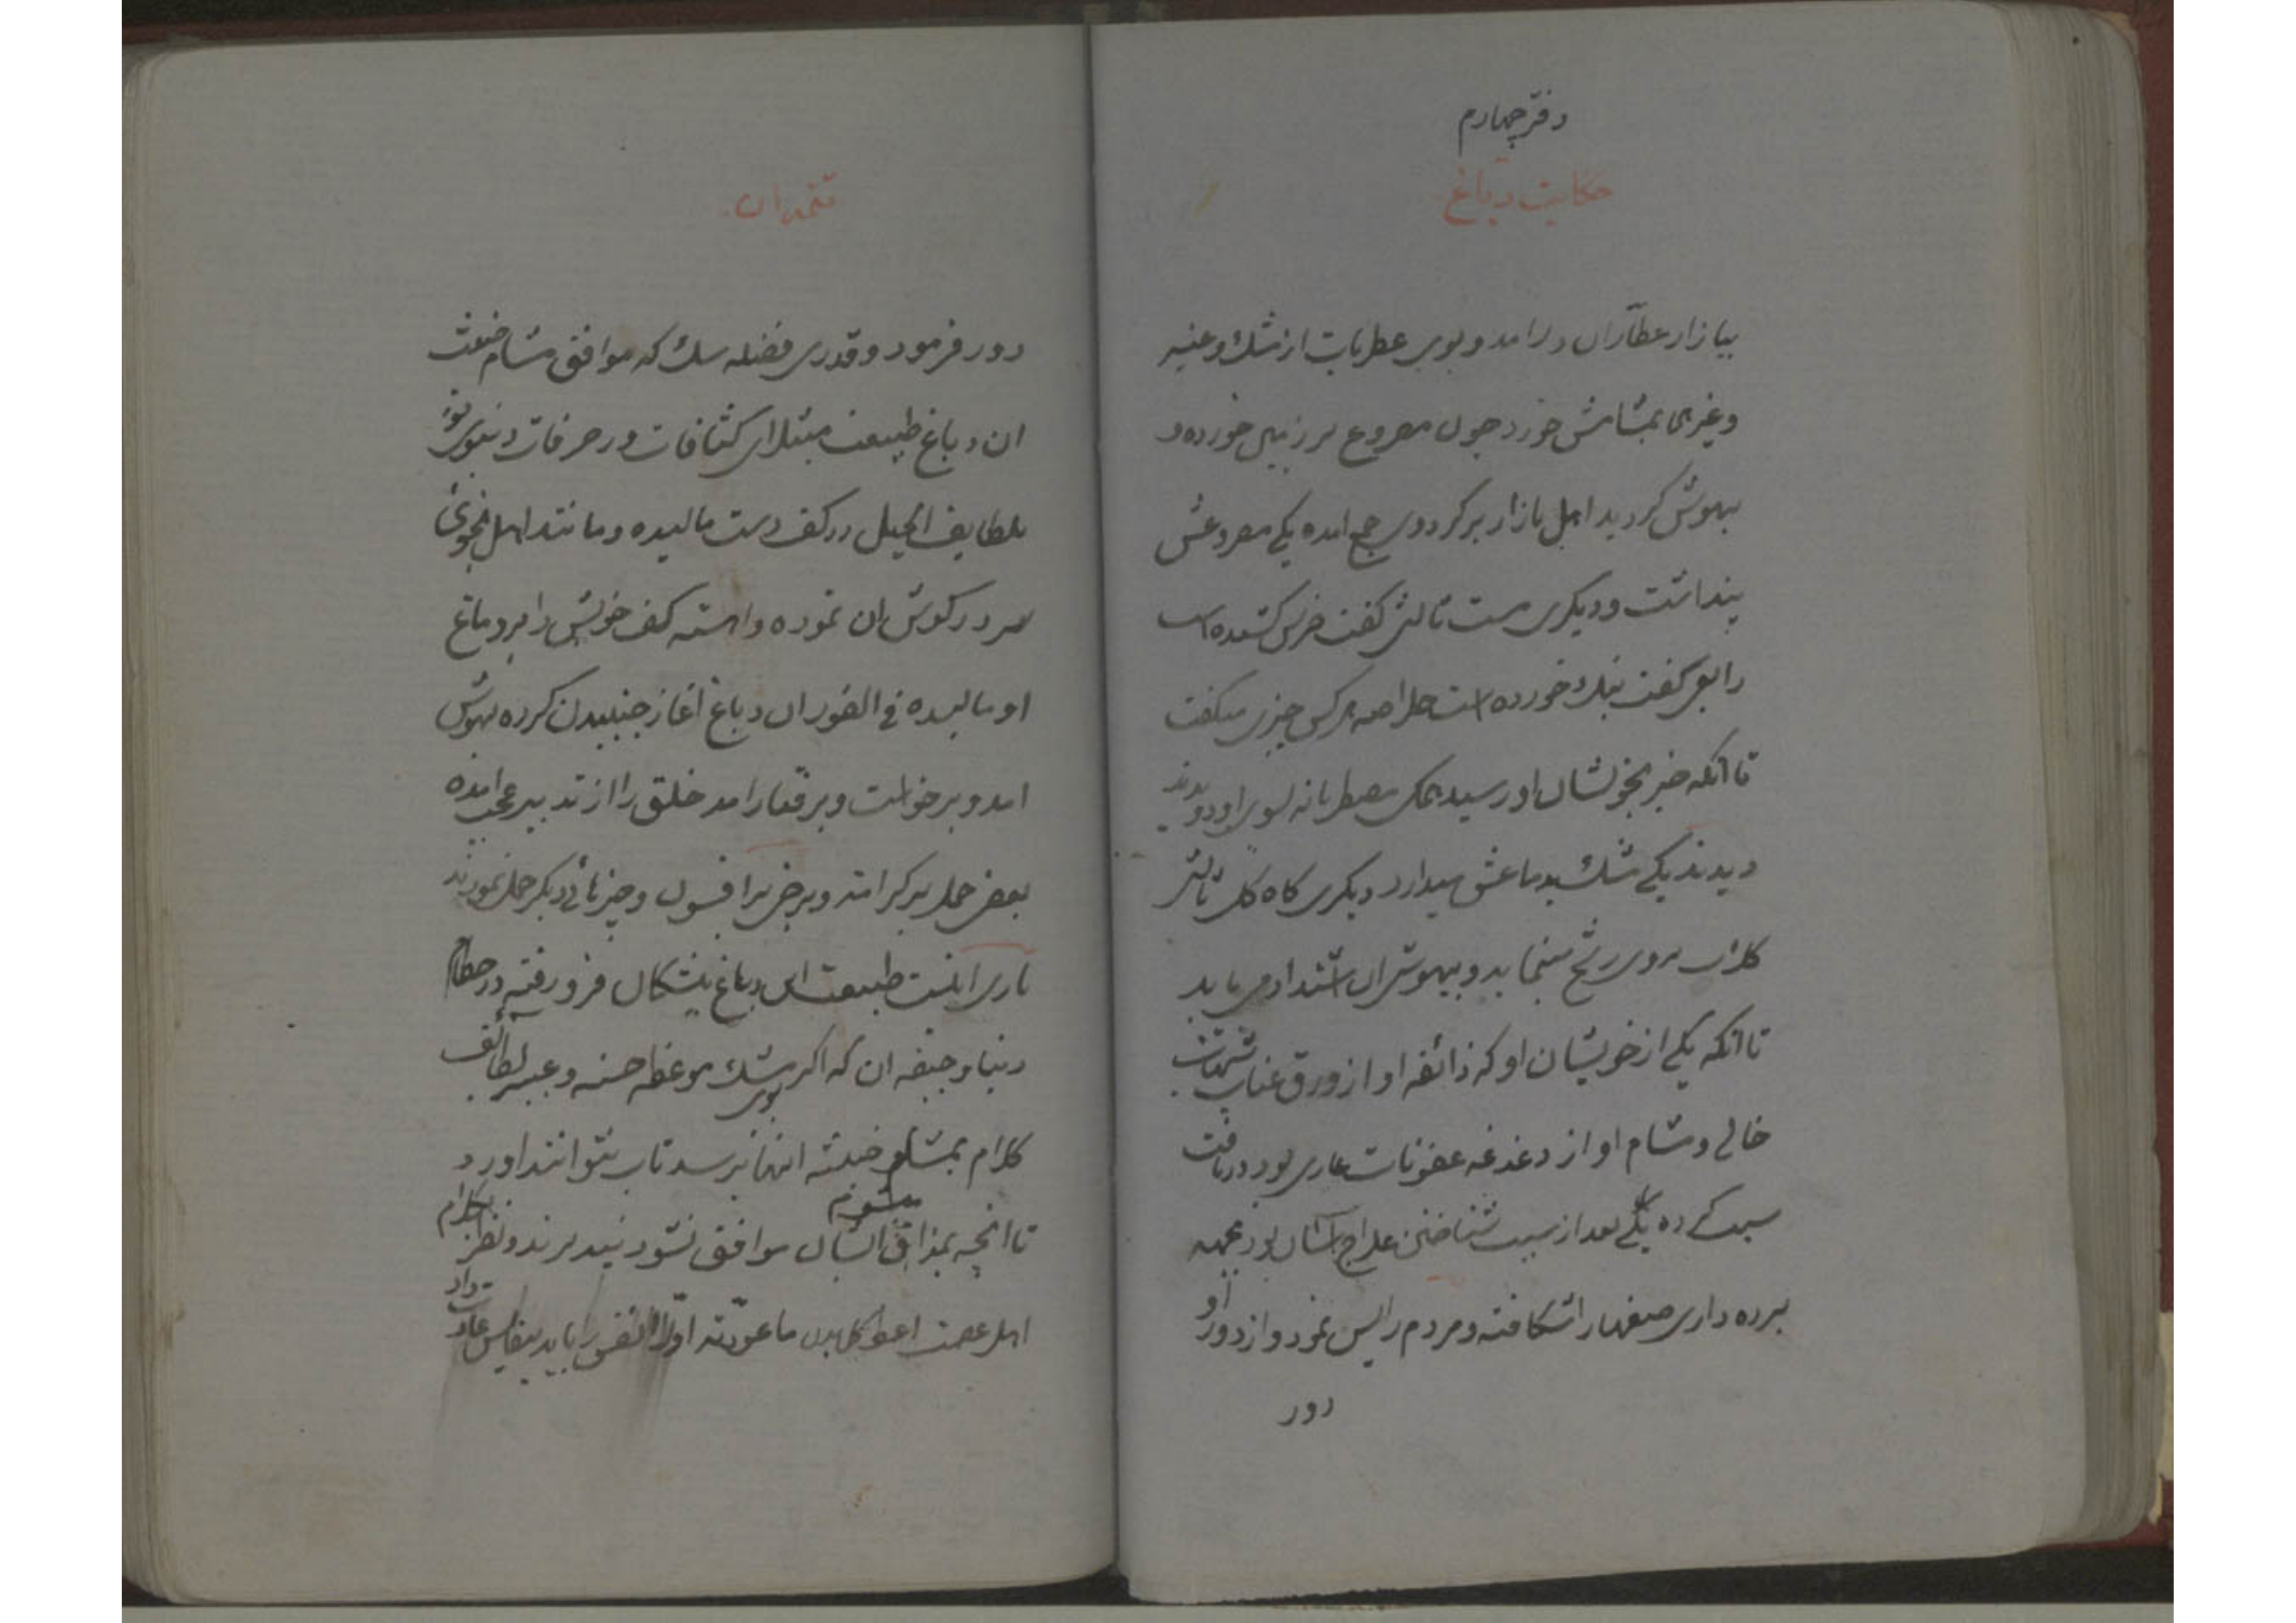 دفتر چهارم
حکایت دباغ
ببازار عطّاران درامد و بوی عطریات از مشک و عنبر
و غیرهی بمشامش خورد چون مصروع بر زمین خورده و
بیهوش کردید اهل بازار بر کرد وی جمع امده یکی مصروعش
پنداشت و دیکری مست ثالثی کفت خرس کشیده است
رابعی کفت بنک خورده است خلاصه هر کس چیزی میکفت
تا انکه خبر بخویشان او رسید همکی مضطربانه بسوی او دویدند
دیدند یکی مشک بدماغش میدارد دیکری کاه کل ثالثی
کلاب بروی رشح مینماید و بیهوشی ان اشتداد می یابد
تا انکه یکی از خویشان او که ذائقه او از ورق عناب
خالی و مشام او از دغدغه عفونات عاری بود دریافت
سبب که ده یکی بعد از سبب شناختن علاج اسان بود بجهه
پرده داری صفها را شکافته و مردم را پس نمود و از دور او
دور
تتمه ان
دور فرمود و قدری فضله سک که موافق مشام خبیث
ان دباغ طبیعت مبتلای کثافات و زخرفات دنیوی بود
بلطایف الحیل در کف دست مالیده و مانند اهل نجوی
سر در کوش ان نموده و اهسته کف خویش را بر دماغ
او مالیده فی الفور ان دباغ اغاز جنبیدن کرده بهوش
امد و برخواست و برفتار امد خلق را از تدبیر عجب امده
بعضی حمل بر کرامت و برخی بر افسون و چیزهائی دیکر حمل نمودند
باری اینست طبیعت این دباغ منشکان فرو رفته در حطام
دنیا و جیفه ان که اکر بوی مشک موعظه حسنه و عبیر لطائف
کلام بمشام خبیثه انها برسد تاب نتوانند اورد
تا انچه بمذاق ایشان موافق نشود نپذیرند و نفس
اهل عصمت اعط کل بدن ما عوّدته اوّلا نفس را باید